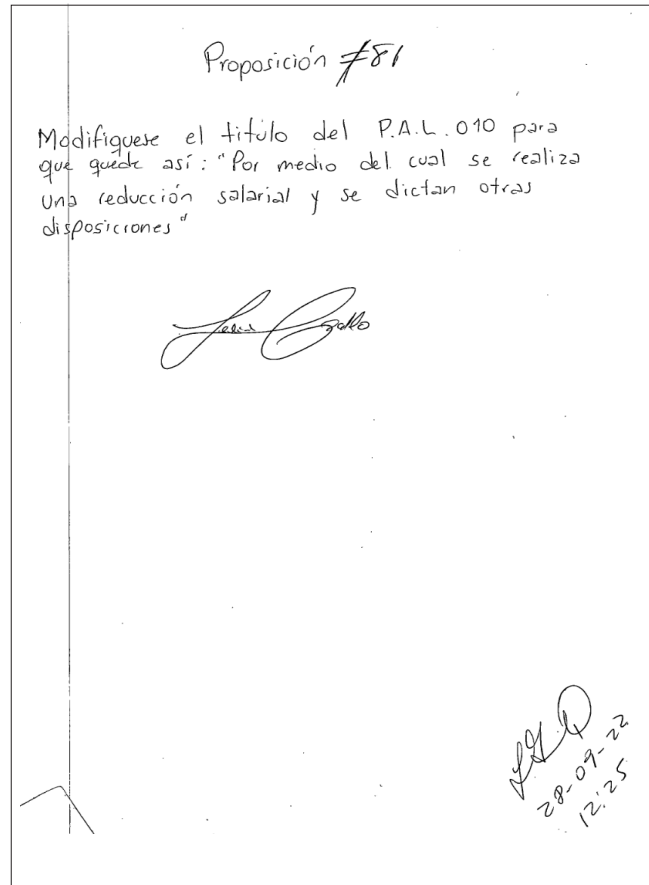 Proposición #81
Modifiquese el titulo del P.A.L. 010 para
que quede así: "Por medio del cual se realiza
una reducción salarial y se dictan otras
disposiciones"
28-09-22
12:25